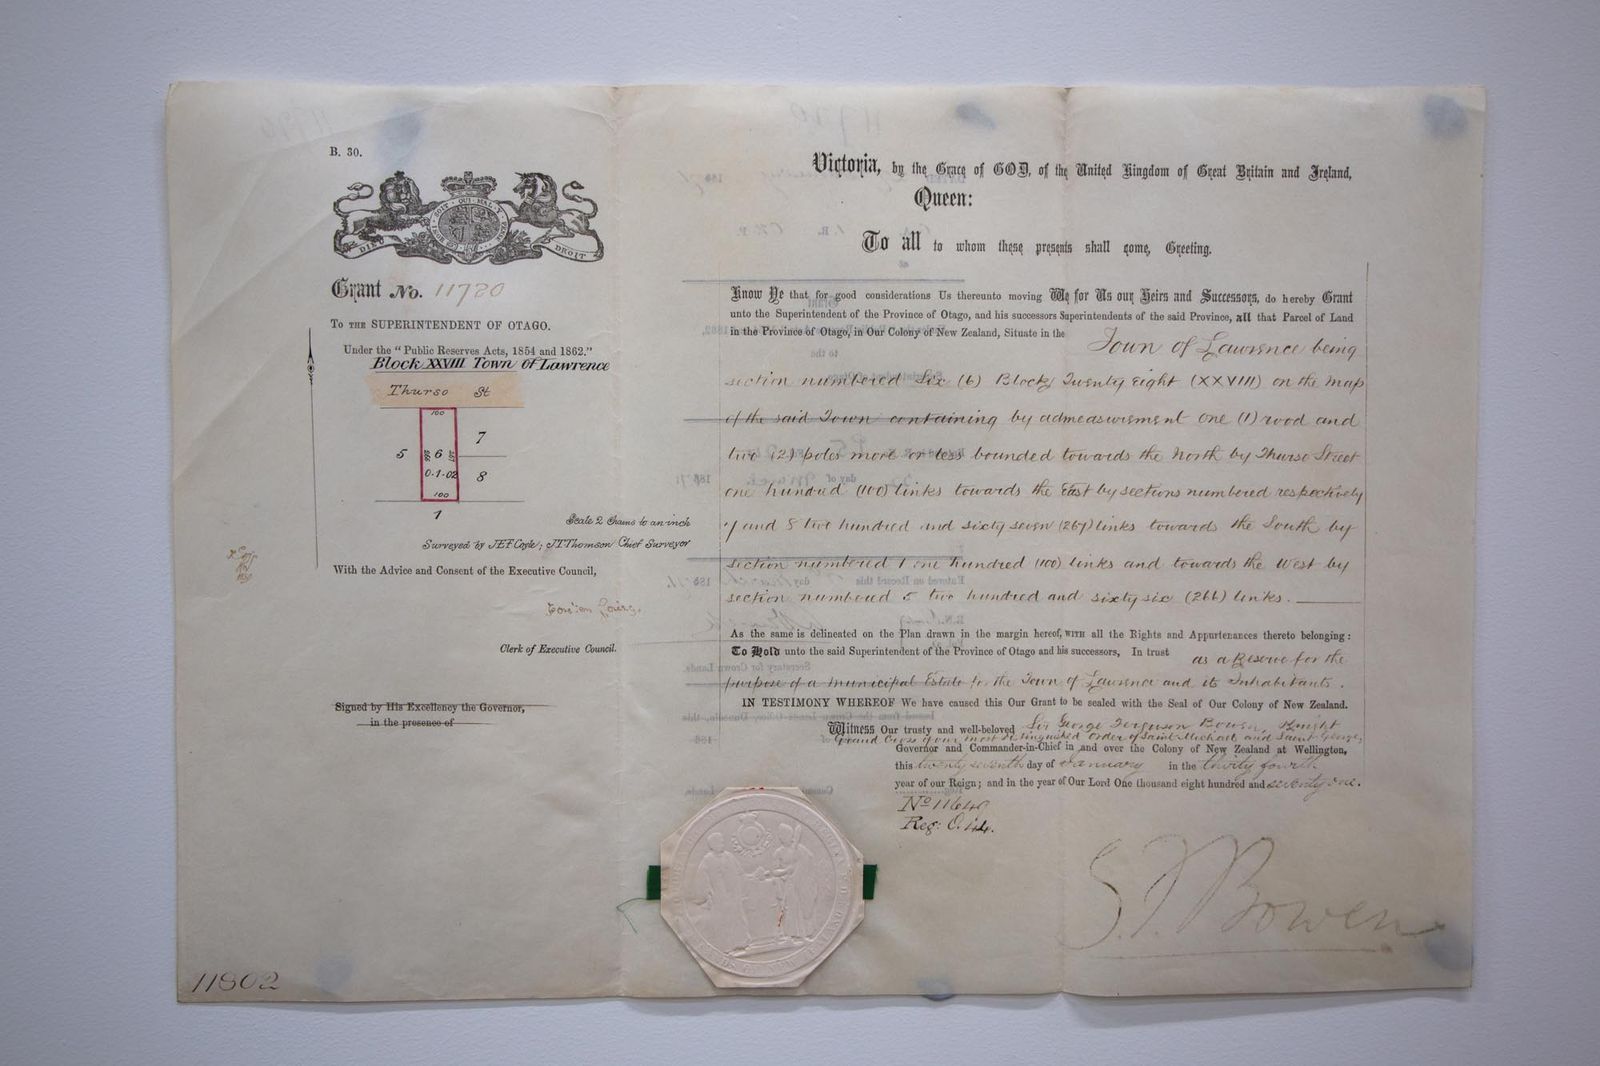 B. 30.
HONI SOIT QUI MAL Y PENSE
DIEU ET MON DROIT
Grant No. 11720
To the SUPERINTENDENT OF OTAGO.
Under the "Public Reserves Acts, 1854 and 1862."
Block XXVIII Town Of Lawrence
Thurso St
100
5 266 6 267 7
0-1-02 8
100
1
Scale 2 Chains to an inch
Surveyed by J.E.F. Coyle; J.T. Thomson Chief Surveyor
With the Advice and Consent of the Executive Council,
Clerk of Executive Council.
Signed by His Excellency the Governor,
in the presence of
11802
Victoria, by the Grace of GOD, of the United Kingdom of Great Britain and Ireland,
Queen:
To all to whom these presents shall come, Greeting.
Know Ye that for good considerations Us thereunto moving We for Us our Heirs and Successors, do hereby Grant
unto the Superintendent of the Province of Otago, and his successors Superintendents of the said Province, all that Parcel of Land
in the Province of Otago, in Our Colony of New Zealand, Situate in the Town of Lawrence being
section numbered Six (6) Block Twenty Eight (XXVIII) on the map
of the said Town containing by admeasurement one (1) rood and
two (2) poles more or less bounded towards the North by Thurso Street
one hundred (100) links towards the East by sections numbered respectively
7 and 8 two hundred and sixty seven (267) links towards the South by
section numbered 1 one hundred (100) links and towards the West by
section numbered 5 two hundred and sixty six (266) links.
As the same is delineated on the Plan drawn in the margin hereof, WITH all the Rights and Appurtenances thereto belonging:
To Hold unto the said Superintendent of the Province of Otago and his successors, In trust as a Reserve for the
purpose of a Municipal Estate for the Town of Lawrence and its Inhabitants.
IN TESTIMONY WHEREOF We have caused this Our Grant to be sealed with the Seal of Our Colony of New Zealand.
Witness Our trusty and well-beloved Sir George Ferguson Bowen, Knight
Grand Cross of our most distinguished Order of Saint Michael and Saint George,
Governor and Commander-in-Chief in and over the Colony of New Zealand at Wellington,
this twenty seventh day of January in the thirty fourth
year of our Reign; and in the year of Our Lord One thousand eight hundred and seventy one.
No 11640
Reg: O. 44.
G. F. Bowen